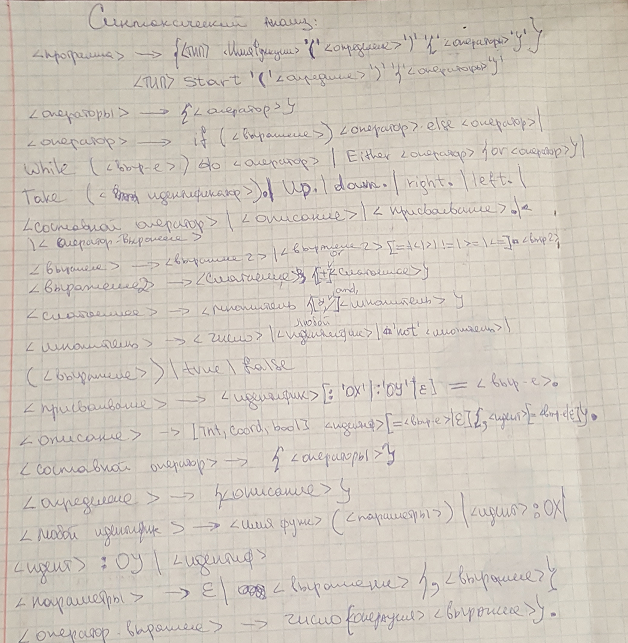 Синтаксический анализ:
<программа> → {<тип> Имя функции '(' <определение> ')' '{' <операторы> '}' }
<тип> start '(' <определение> ')' '{' <операторы> '}'
<операторы> → {<оператор>}
<оператор> → if (<выражение>) <оператор> else <оператор> |
While (<выр-е>) do <оператор> | Either <оператор> {or <оператор>} |
Take (<идентификатор>). | Up. | down. | right. | left. |
<составной оператор> | <описание> | <присваивание>. |
<оператор-выражение>
<выражение> → <выражение 2> | <выражение 2> [==|<|>|!=|>=|<=] <выр2>
<выражение2> → <слагаемое> {[+|-|or] <слагаемое>}
<слагаемое> → <множитель> {[*|/|and] <множитель>}
<множитель> → <число> | <любой идентифик> | 'not' <множитель> |
(<выражение>) | true | false
<присваивание> → <идентифик> [: 'OX' | : 'OY' | ε] = <выр-е>.
<описание> → [int, coord, bool] <идентиф> [=<выр-е>|ε] {, <идент> [=<выр-е>|ε]}.
<составной оператор> → { <операторы> }
<определение> → {<описание>}
<любой идентифик> → <имя функ> (<параметры>) | <идент> : OX |
<идент> : OY | <идентиф>
<параметры> → ε | <выражение> {, <выражение>}
<оператор выражение> → число {операция} <выражение>.